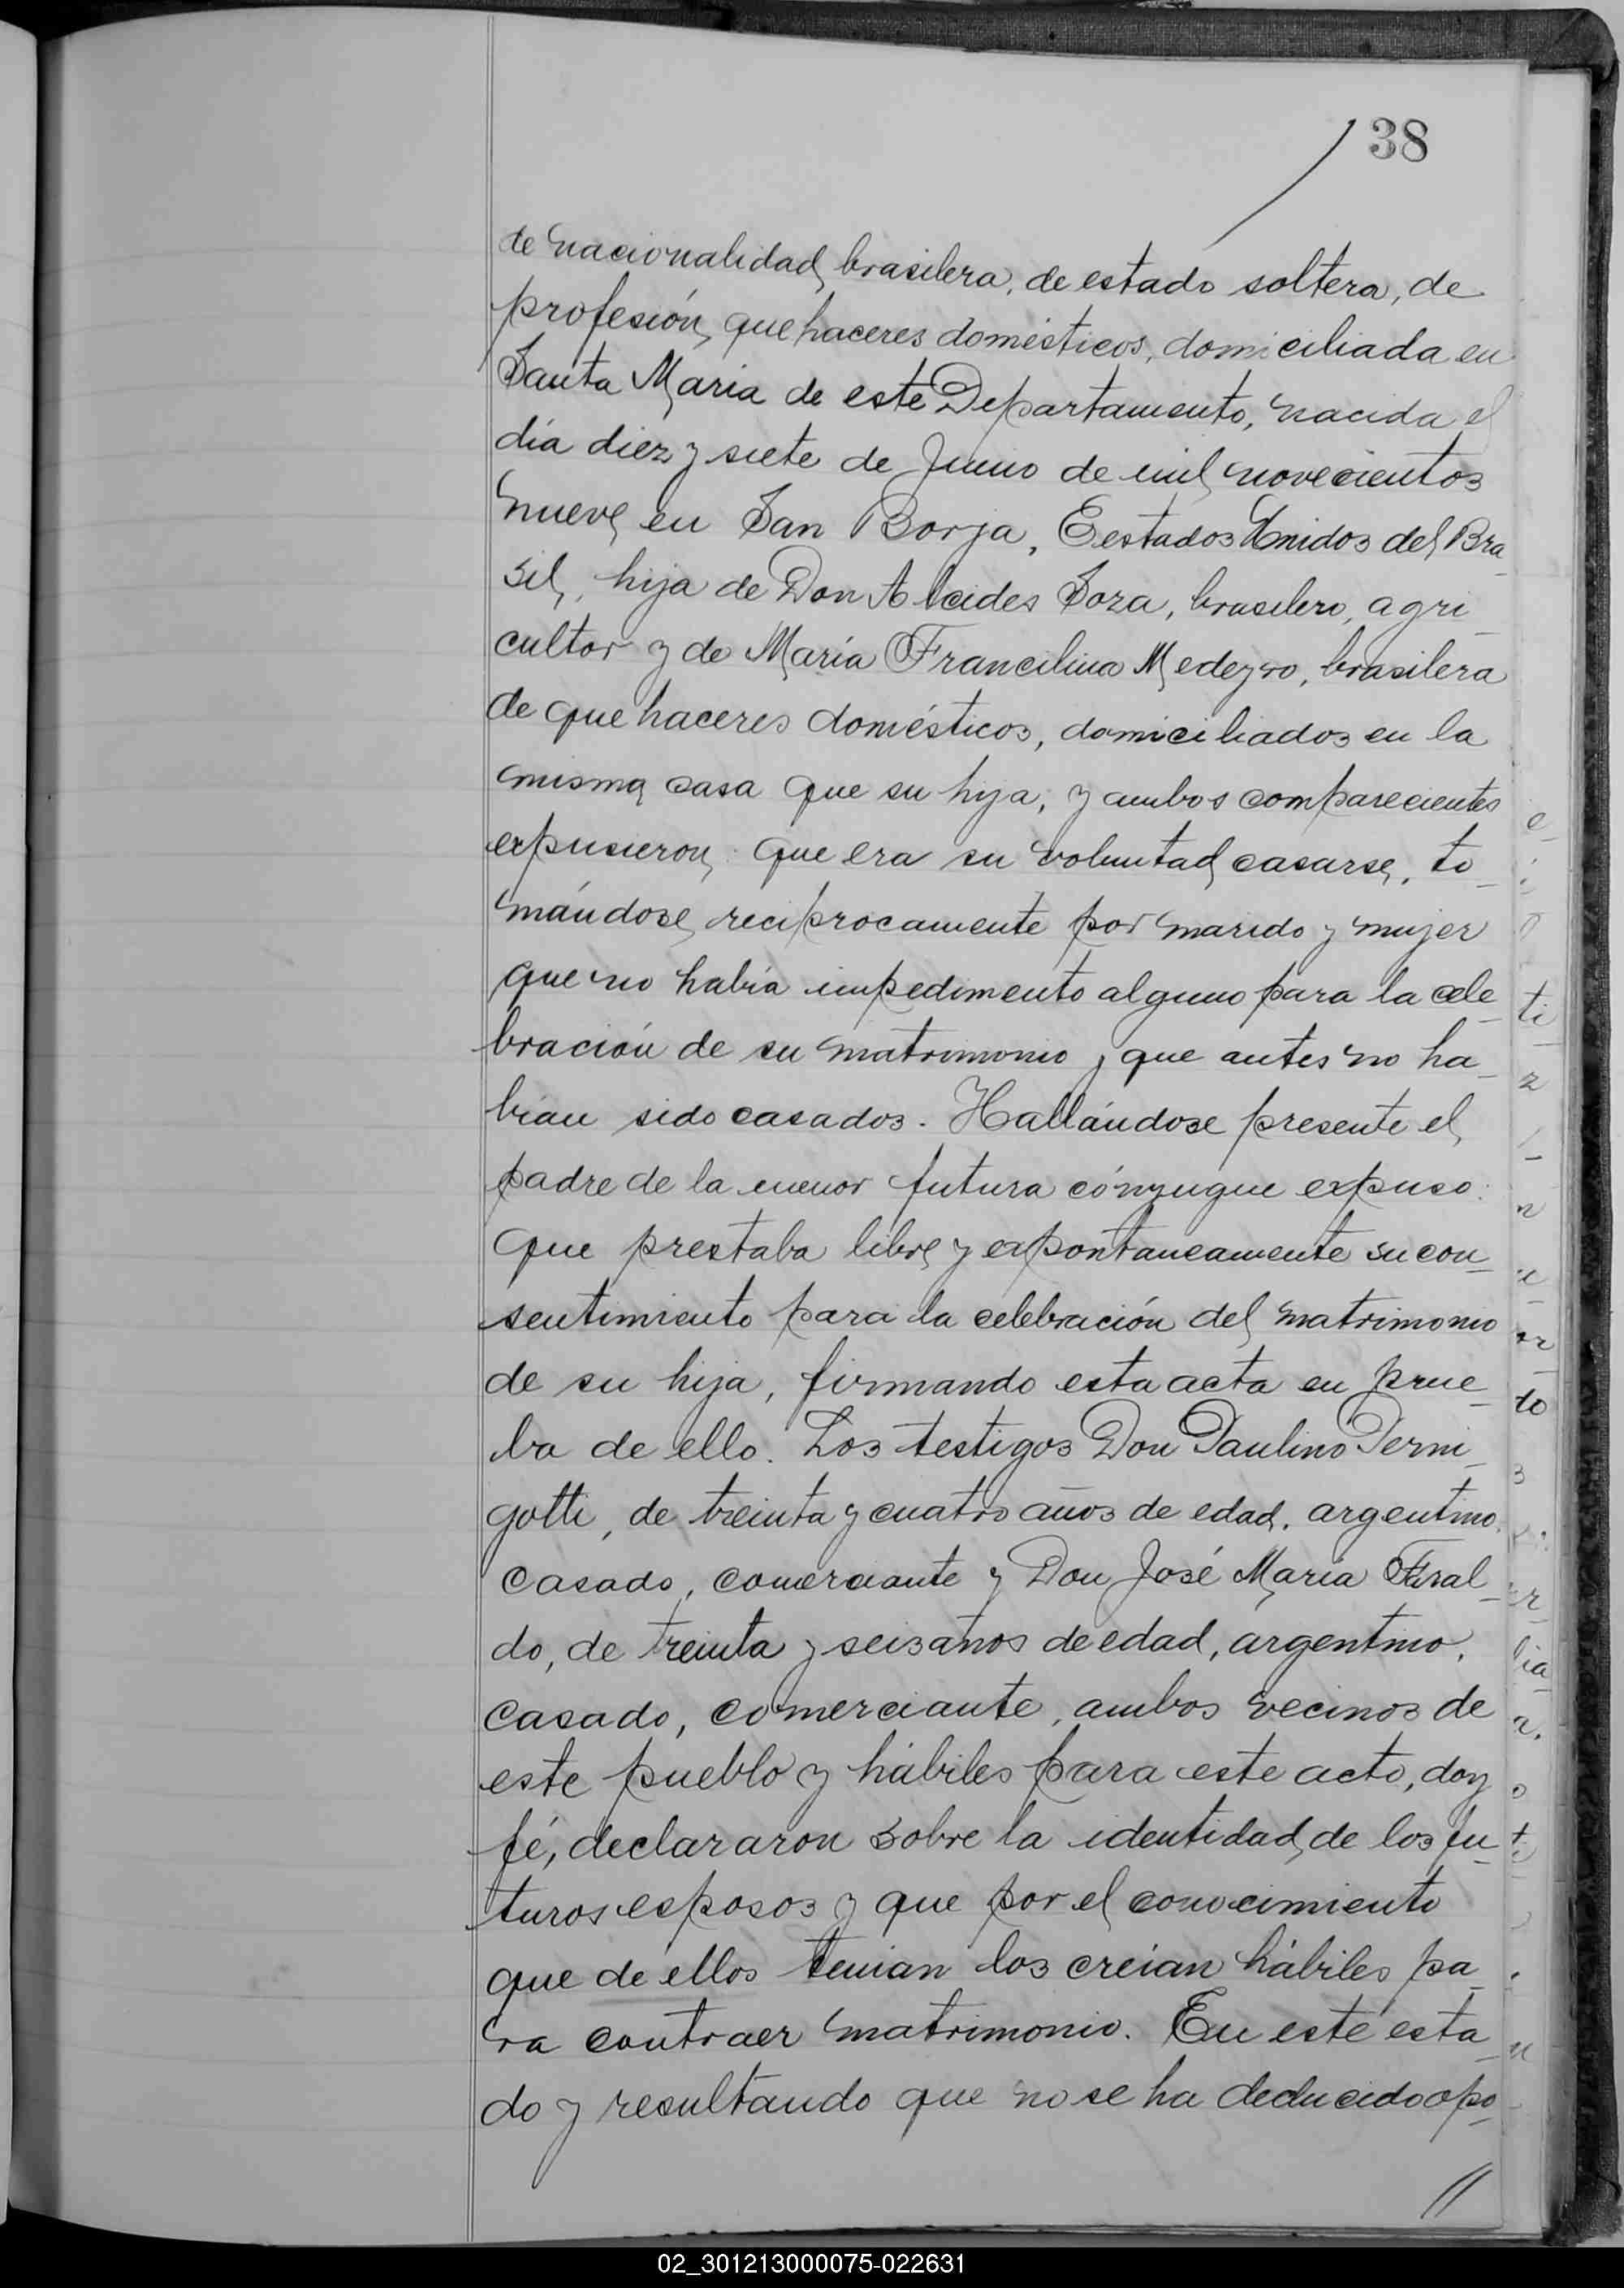 38
de nacionalidad brasilera, de estado soltera, de
profesión quehaceres domésticos, domiciliada en
Santa María de este Departamento, nacida el
día diez y siete de Junio de mil novecientos
nueve en San Borja, Eestados Unidos del Bra-
sil, hija de Don Alcides Soza, brasilero, agri-
cultor y de María Francilina Medeyro, brasilera
de quehaceres domésticos, domiciliados en la
misma casa que su hija; y ambos comparecientes
expusieron: que era su voluntad casarse, to-
mándose reciprocamente por marido y mujer
que no había impedimento alguno para la cele-
bración de su matrimonio y que antes no ha-
bían sido casados. Hallándose presente el
padre de la menor futura cónyugue expuso:
que prestaba libre y expontaneamente su con-
sentimiento para la celebración del matrimonio
de su hija, firmando esta acta en prue-
ba de ello. Los testigos Don Paulino Perni-
gotti, de treinta y cuatro años de edad, argentino,
casado, comerciante y Don José María
do, de treinta y seis años de edad, argentino,
casado, comerciante, ambos vecinos de
este pueblo y hábiles para este acto, doy
fé, declararon sobre la identidad de los fu-
turos esposos y que por el conocimiento
que de ellos tenian los creían hábiles pa-
ra contraer matrimonio. En este esta-
do y resultando que no se ha deducido opo-
//
02_301213000075-022631